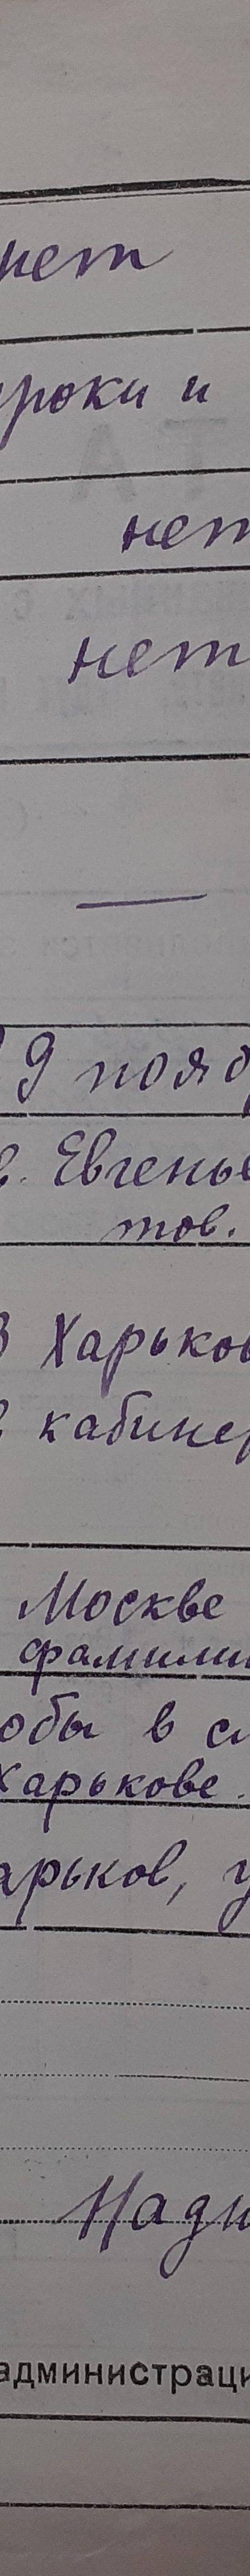 нет
уроки и
нет
нет
—
9 нояб
в. Евгенье
тов.
В Харьков
в кабине
Москве
фамили
обы в с
Харькове.
арьков, у
Нади
администраци